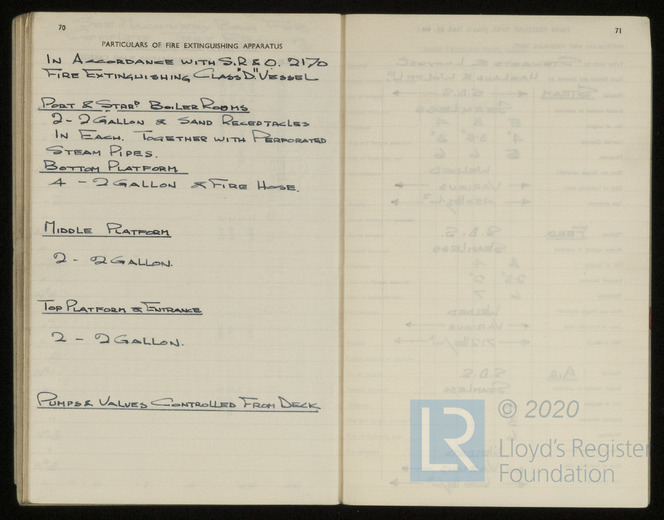 70
PARTICULARS OF FIRE EXTINGUISHING APPARATUS
IN ACCORDANCE WITH S.R & O. 2170
FIRE EXTINGUISHING CLASS "D" VESSEL
PORT & STARD BOILER ROOMS
2 - 2 GALLON & SAND RECEPTACLES
IN EACH. TOGETHER WITH PERFORATED
STEAM PIPES.
BOTTOM PLATFORM
4 - 2 GALLON & FIRE HOSE.
MIDDLE PLATFORM
2 - 2 GALLON.
TOP PLATFORM & ENTRANCE
2 - 2 GALLON.
PUMPS & VALVES CONTROLLED FROM DECK
71
LR © 2020
Lloyd's Register
Foundation